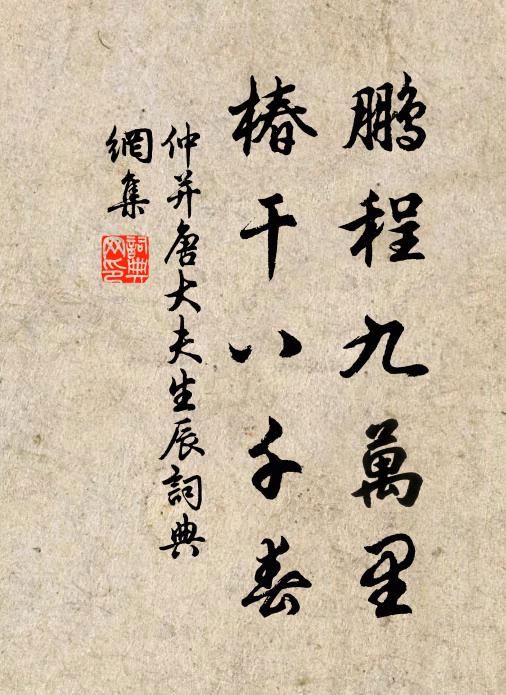 鵬程九萬里
椿干八千春
仲并唐大夫生辰詞典
網集
詞典
网印